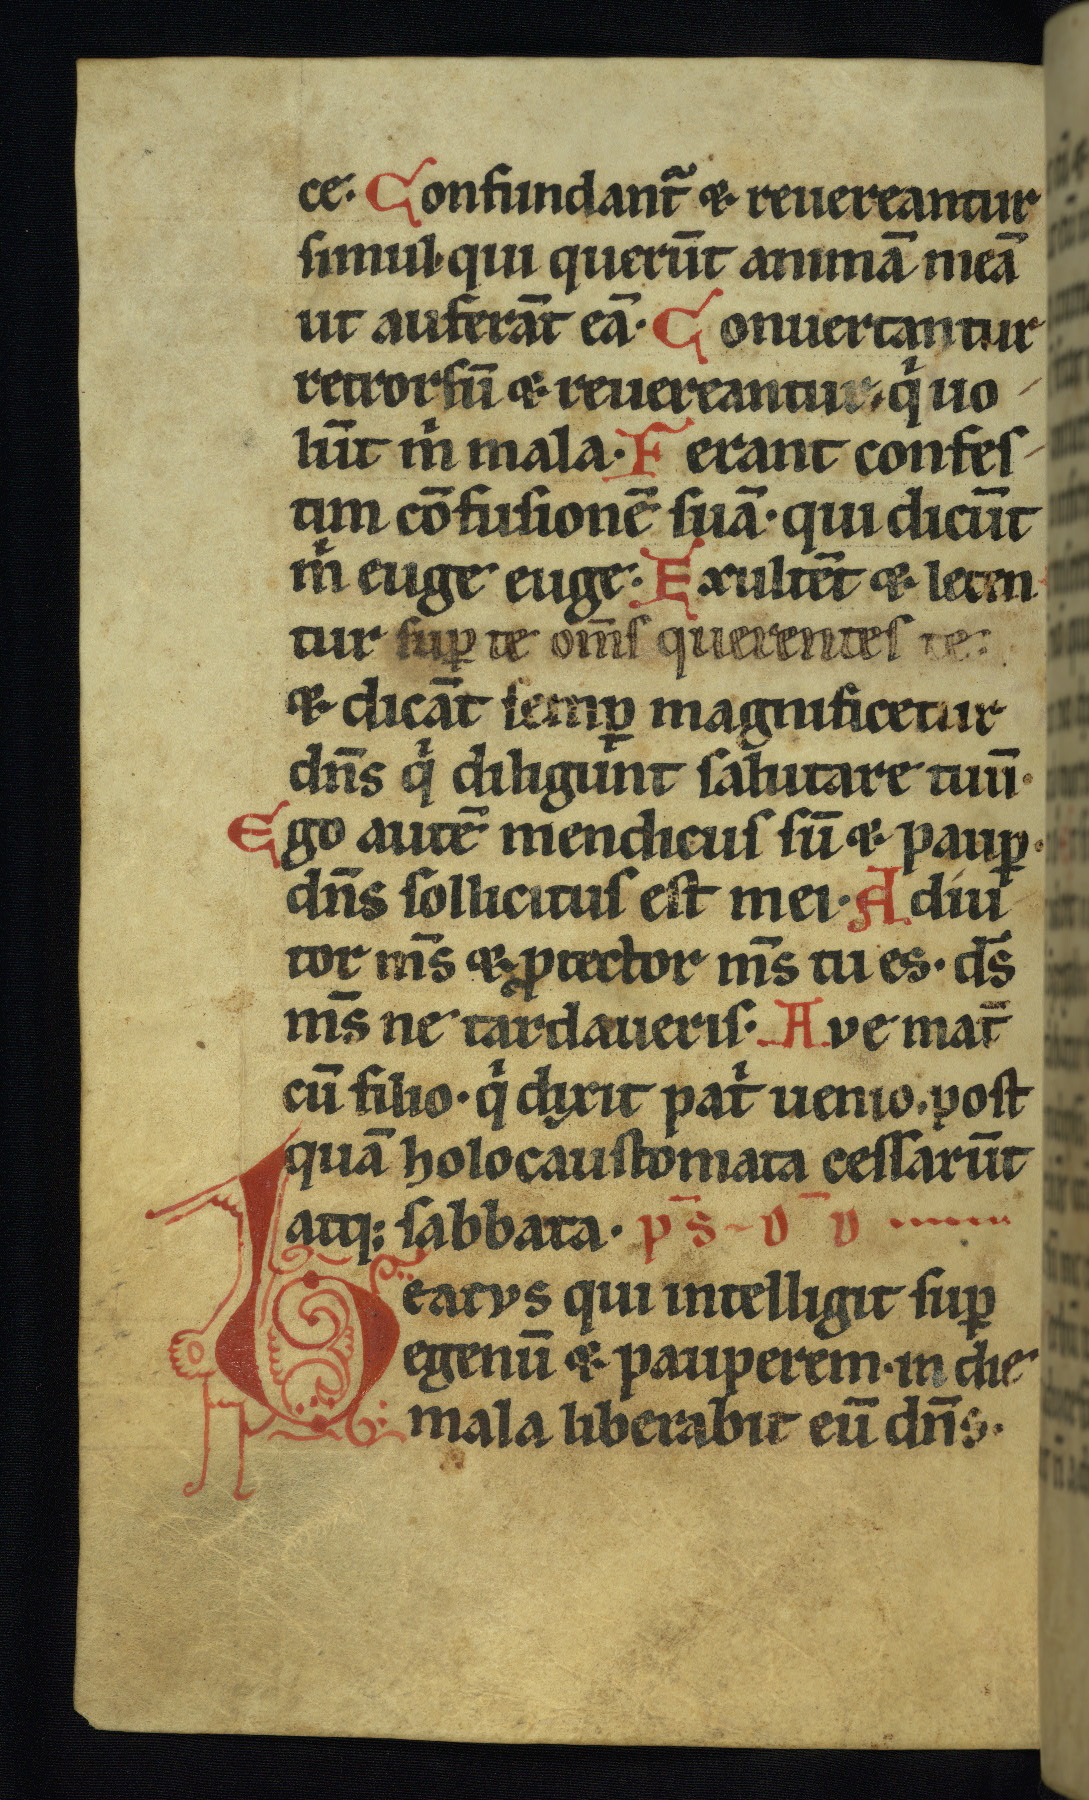 ce· Confundant᷑ & reuereantur
simul· qui querūt animā meā
ut auferāt eā· Conuertantur
retrorsū & reuereantur, qͥ uo
lūt mͥ mala· Ferant confes
tim cōfusionē suā· qui dicūt
mͥ euge euge· Exultēt & leten
tur suꝑ te om̄s querentes te:
& dicāt semꝑ magnificetur
dn̄s qͥ diligunt salutare tuū·
Ego autē mendicus sū & pauꝑ·
dn̄s sollicitus est mei· Adiu
tor m̄s & ꝓtector m̄s tu es· ds̄
m̄s ne tardaueris· Ave mat̄
cū filio· qͥ dixit patͥ uenio, post
quā holocaustomata cessarūt
atq; sabbata· ps̄ ~ v̄ v
Beatvs qui intelligit suꝑ
egenū & pauperem· in die
mala liberabit eū dn̄s·